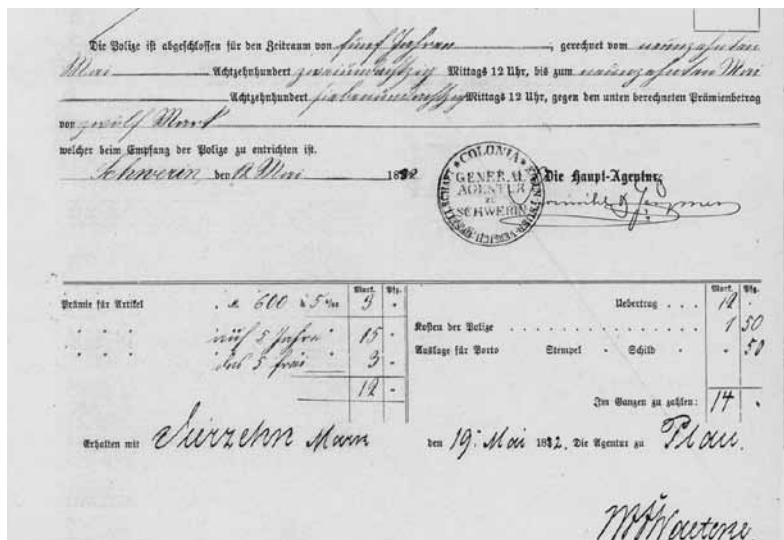 Die Polize ist abgeschlossen für den Zeitraum von fünf Jahren, gerechnet vom neunzehnten
Mai Achtzehnhundert zweiundachtzig Mittags 12 Uhr, bis zum neunzehnten Mai
Achtzehnhundert siebenundachtzig Mittags 12 Uhr, gegen den unten berechneten Prämienbetrag
von zwölf Mark
welcher beim Empfang der Polize zu entrichten ist.
Schwerin, den Mai 1882
COLONIA
GENERAL
AGENTUR
zu
SCHWERIN
Die Haupt-Agentur:
Mark. Pfg. Mark. Pfg.
Prämie für Artikel . M 600 à 5 ‰ 3 - Uebertrag . . . 12 -
" " " auf 5 Jahre 15 - Kosten der Polize . . . 1 50
" " " das 5 frei 3 - Auslage für Porto Stempel - Schild - - 50
12 - Im Ganzen zu zahlen: 14 -
Erhalten mit Vierzehn Mark den 19. Mai 1882. Die Agentur zu Plau.